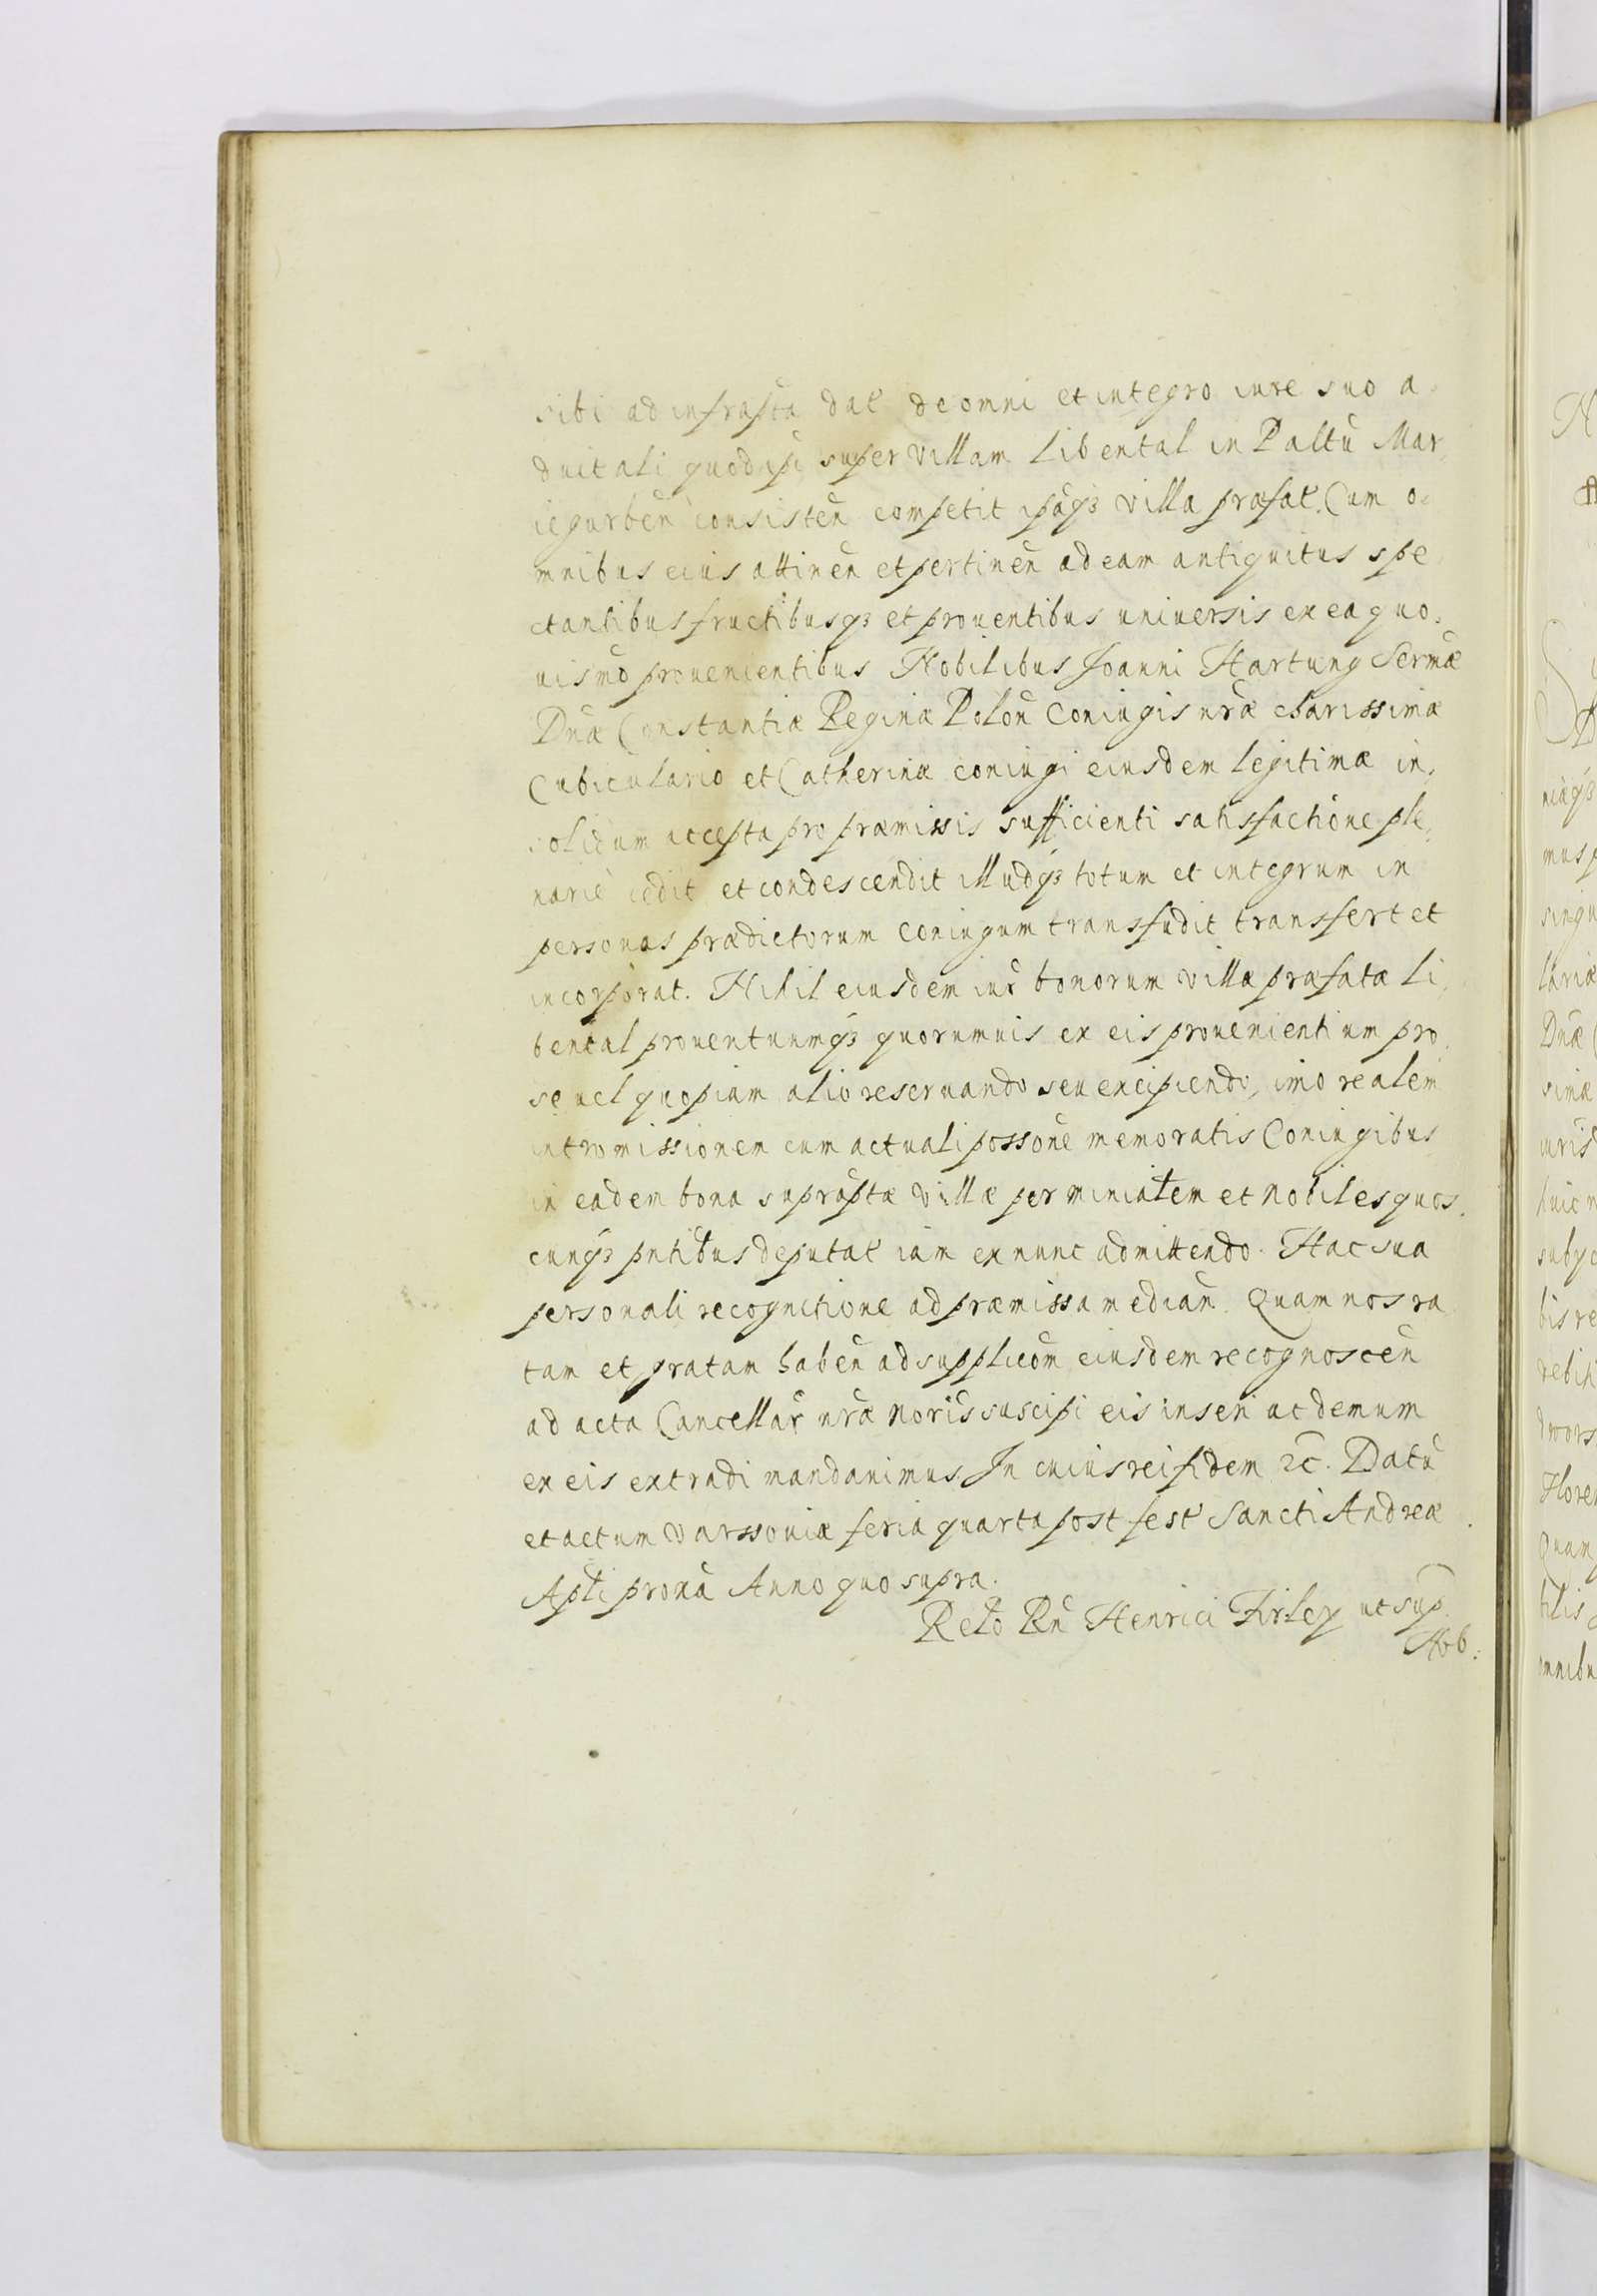 sibi ad infrascta dat̃ de omni et integro iure suo a
duitali quod ipi super villam Libental in Paltũ Mar
iegurbeñ consisteñ competit ipãqz villa præfat̃. Cum o
mnibus eius attineñ et pertineñ ad eam antiquitus spe
ctantibus fructibusqz et prouentibus uniuersis ex ea quo
uismõ prouenientibus Nobilibus Joanni Hartung Sermæ
Dnæ Constantiæ Reginæ Poloñ Coniugis nræ charissimæ
Cubiculario et Catherinæ coniugi eiusdem legitimæ in
solidum accepta pro præmissis sufficienti satisfactione ple
nariè cedit et condescendit illudqz totum et integrum in
personas prædictorum Coniugum transfudit transfert et
incorporat. Nihil eiusdem iur̃ bonorum villæ præfatæ Li
bental prouentuumqz quorumuis ex eis prouenientium pro
se uel quopiam alio reseruando seu excipiendo, imo realem
intromissionem cum actuali possoñe memoratis Coniugibus
in eadem bona suprascptæ villæ per miniatem et nobiles quos
cunqz pntibus deputat̃ iam ex nunc admittendo. Hac sua
personali recognitione ad præmissa mediañ. Quam nos ra
tam et gratam habeñ ad supplicom̃ eiusdem recognosceñ
ad acta Cancellar̃ nræ noris̃ suscipi eis inseri ac demum
ex eis extradi mandauimus. In cuius rei fidem ꝛc. Datũ
et actum Varssouiæ feria quarta post fest̃ Sancti Andreæ
Apłi proxã Anno quo supra.
Relõ Rñ Henrici Firley ut sup̃